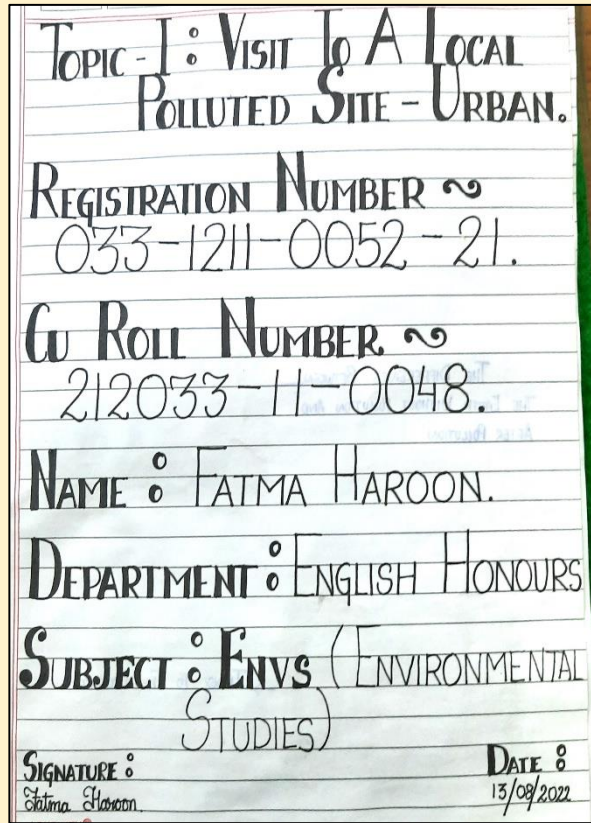 TOPIC - I : VISIT TO A LOCAL
POLLUTED SITE - URBAN.
REGISTRATION NUMBER ~
033-1211-0052-21.
CU ROLL NUMBER ~
212033-11-0048.
NAME : FATMA HAROON.
DEPARTMENT : ENGLISH HONOURS
SUBJECT : ENVS (ENVIRONMENTAL
STUDIES)
SIGNATURE : DATE :
Fatma Haroon 13/08/2022